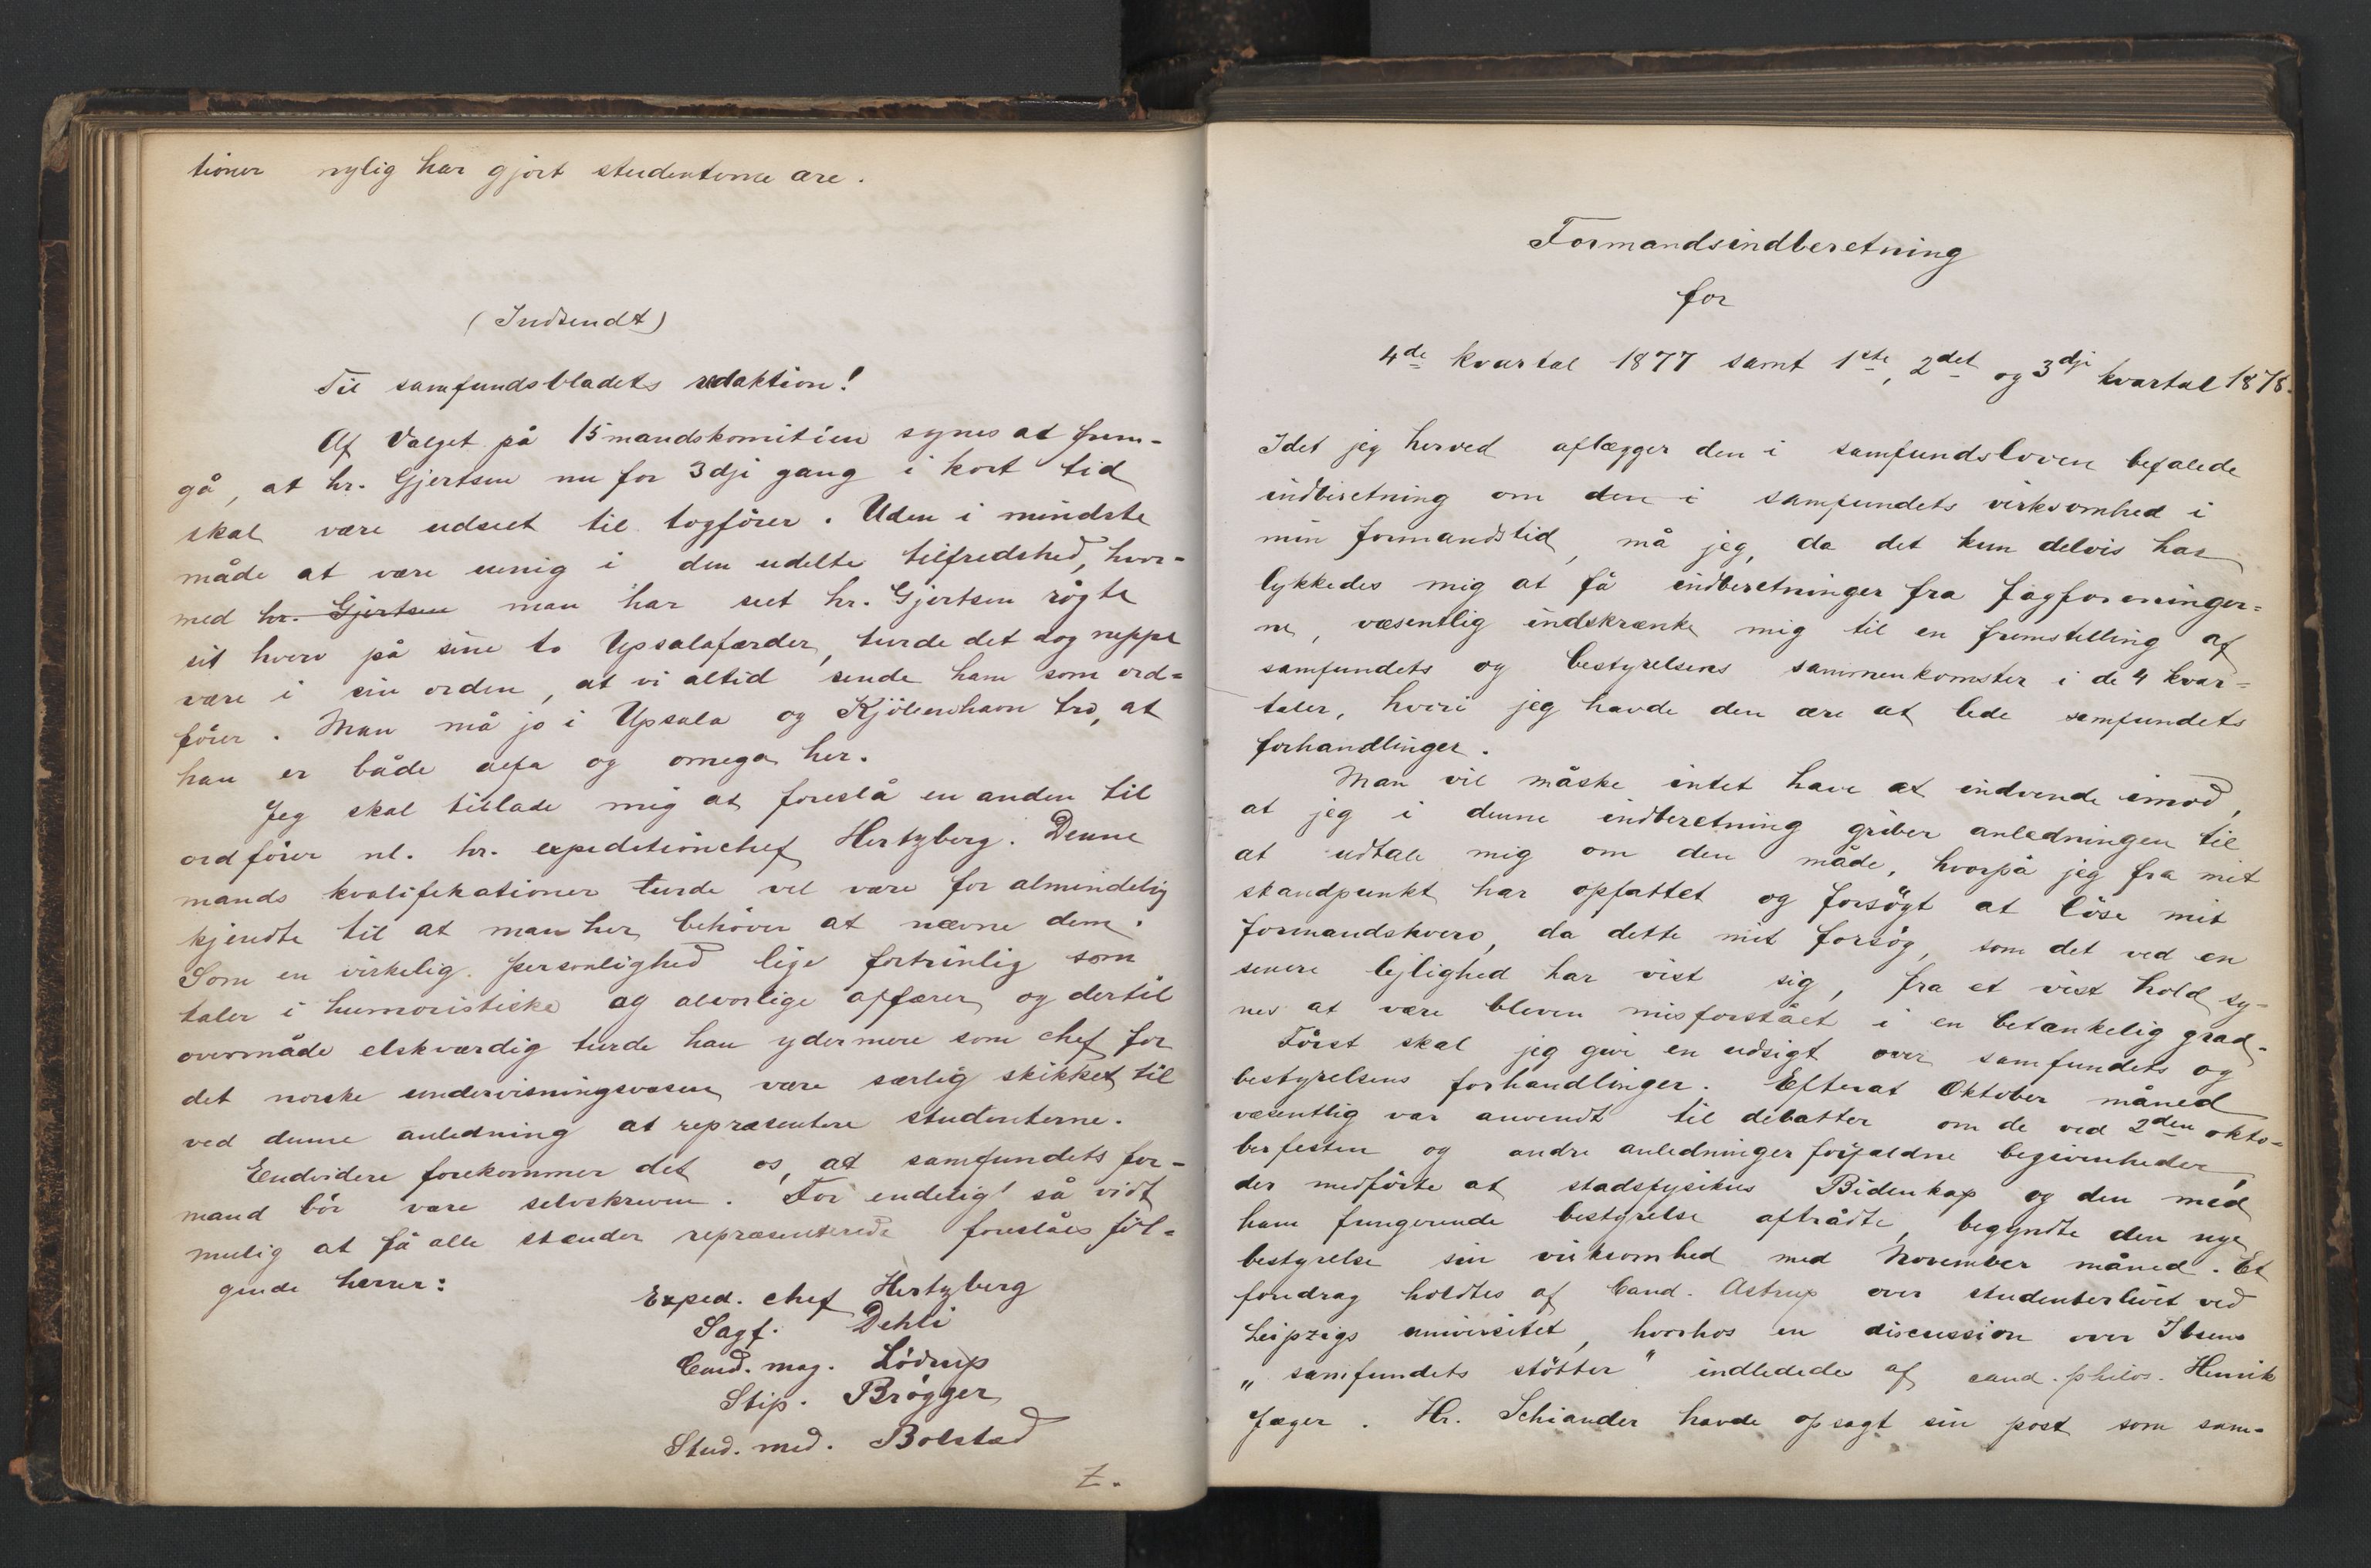 tioner nylig har gjort studenterne ære.
(Indsendt)
Til samfundsbladets redaktion!
Af Valget på 15mandskomitéen synes at frem-
gå, at hr. Gjertsen nu for 3dje gang i kort tid
skal være udseet til togfører. Uden i mindste
måde at være uenig i den udelte tilfredshed, hvor-
med hr. Gjertsen man har seet hr. Gjertsen røgte
sit hverv på sine to Upsalafærder, turde det dog neppe
være i sin orden, at vi altid sende ham som ord-
fører. Man må jo i Upsala og Kjöbenhavn tro, at
han er både alfa og omega her.
Jeg skal tillade mig at foreslå en anden til
ordfører nl. hr. expeditionchef Hertzberg. Denne
mands kvalifikationer turde vel være for almindelig
kjendte til at man her behøver at nævne dem.
Som en virkelig personlighed lige fortrinlig som
taler i humoristiske og alvorlige affærer og dertil
overmåde elskværdig turde han ydermere som chef for
det norske undervisningsvæsen være særlig skikket til
ved denne anledning at repræsentere studenterne.
Endvidere forekommer det os, at samfundets for-
mand bör være selvskreven. For endelig så vidt
mulig at få alle stænder repræsenterede foreslåes föl-
gende herrer:
Exped. chef Hertzberg
Sagf. Dehli
Cand. mag. Lödrup
Stip. Brögger
Stud. med. Bolstad
Z.
Formandsindberetning
for
4de kvartal 1877 samt 1ste, 2det og 3dje kvartal 1878.
Idet jeg herved aflægger den i samfundsloven befalede
indberetning om den i samfundets virksomhed i
min formandstid, må jeg, da det kun delvis har
lykkedes mig at få indberetninger fra fagforeninger=
ne, væsentlig indskrænke mig til en fremstilling af
samfundets og bestyrelsens sammenkomster i de 4 kvar=
taler, hvori jeg havde den ære at lede samfundets
forhandlinger.
Man vil måske intet have at indvende imod,
at jeg i denne indberetning griber anledningen til
at udtale mig om den måde, hvorpå jeg fra mit
standpunkt har opfattet og forsögt at löse mit
formandshverv, da dette mit forsög, som det ved en
senere lejlighed har vist sig, fra et vist hold sy-
nes at være bleven misforstået i en betænkelig grad.
Först skal jeg give en udsigt over samfundets og
bestyrelsens forhandlinger. Efterat Oktober måned
væsentlig var anvendt til debatter om de ved 2den okto-
berfesten og andre anledninger forfaldne begivenheder,
der medförte at stadsfysikus Bidenkap og den med
ham fungerende bestyrelse aftrådte, begyndte den nye
bestyrelse sin virksomhed med November måned. Et
foredrag holdtes af Cand. Astrup over studenterlivet ved
Leipzigs universitet, hvorhos en discussion over Ibsens
„samfundets stötter" indlededes af cand. philos. Henrik
Jæger. Hr. Schiander havde opsagt sin post som sam-